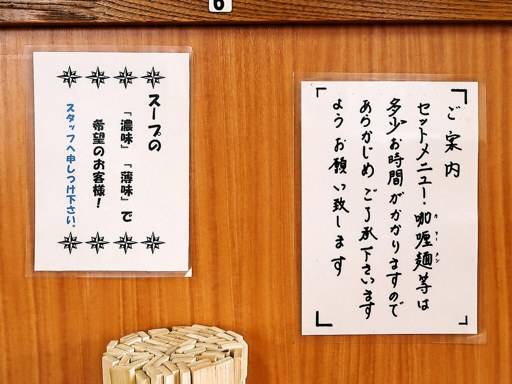 6
ご案内
セットメニュー・咖喱麺等は
カリーメン
多少お時間がかかりますので
あらかじめご了承下さいます
ようお願い致します
スープの
「濃味」「薄味」で
希望のお客様！
スタッフへ申しつけ下さい。